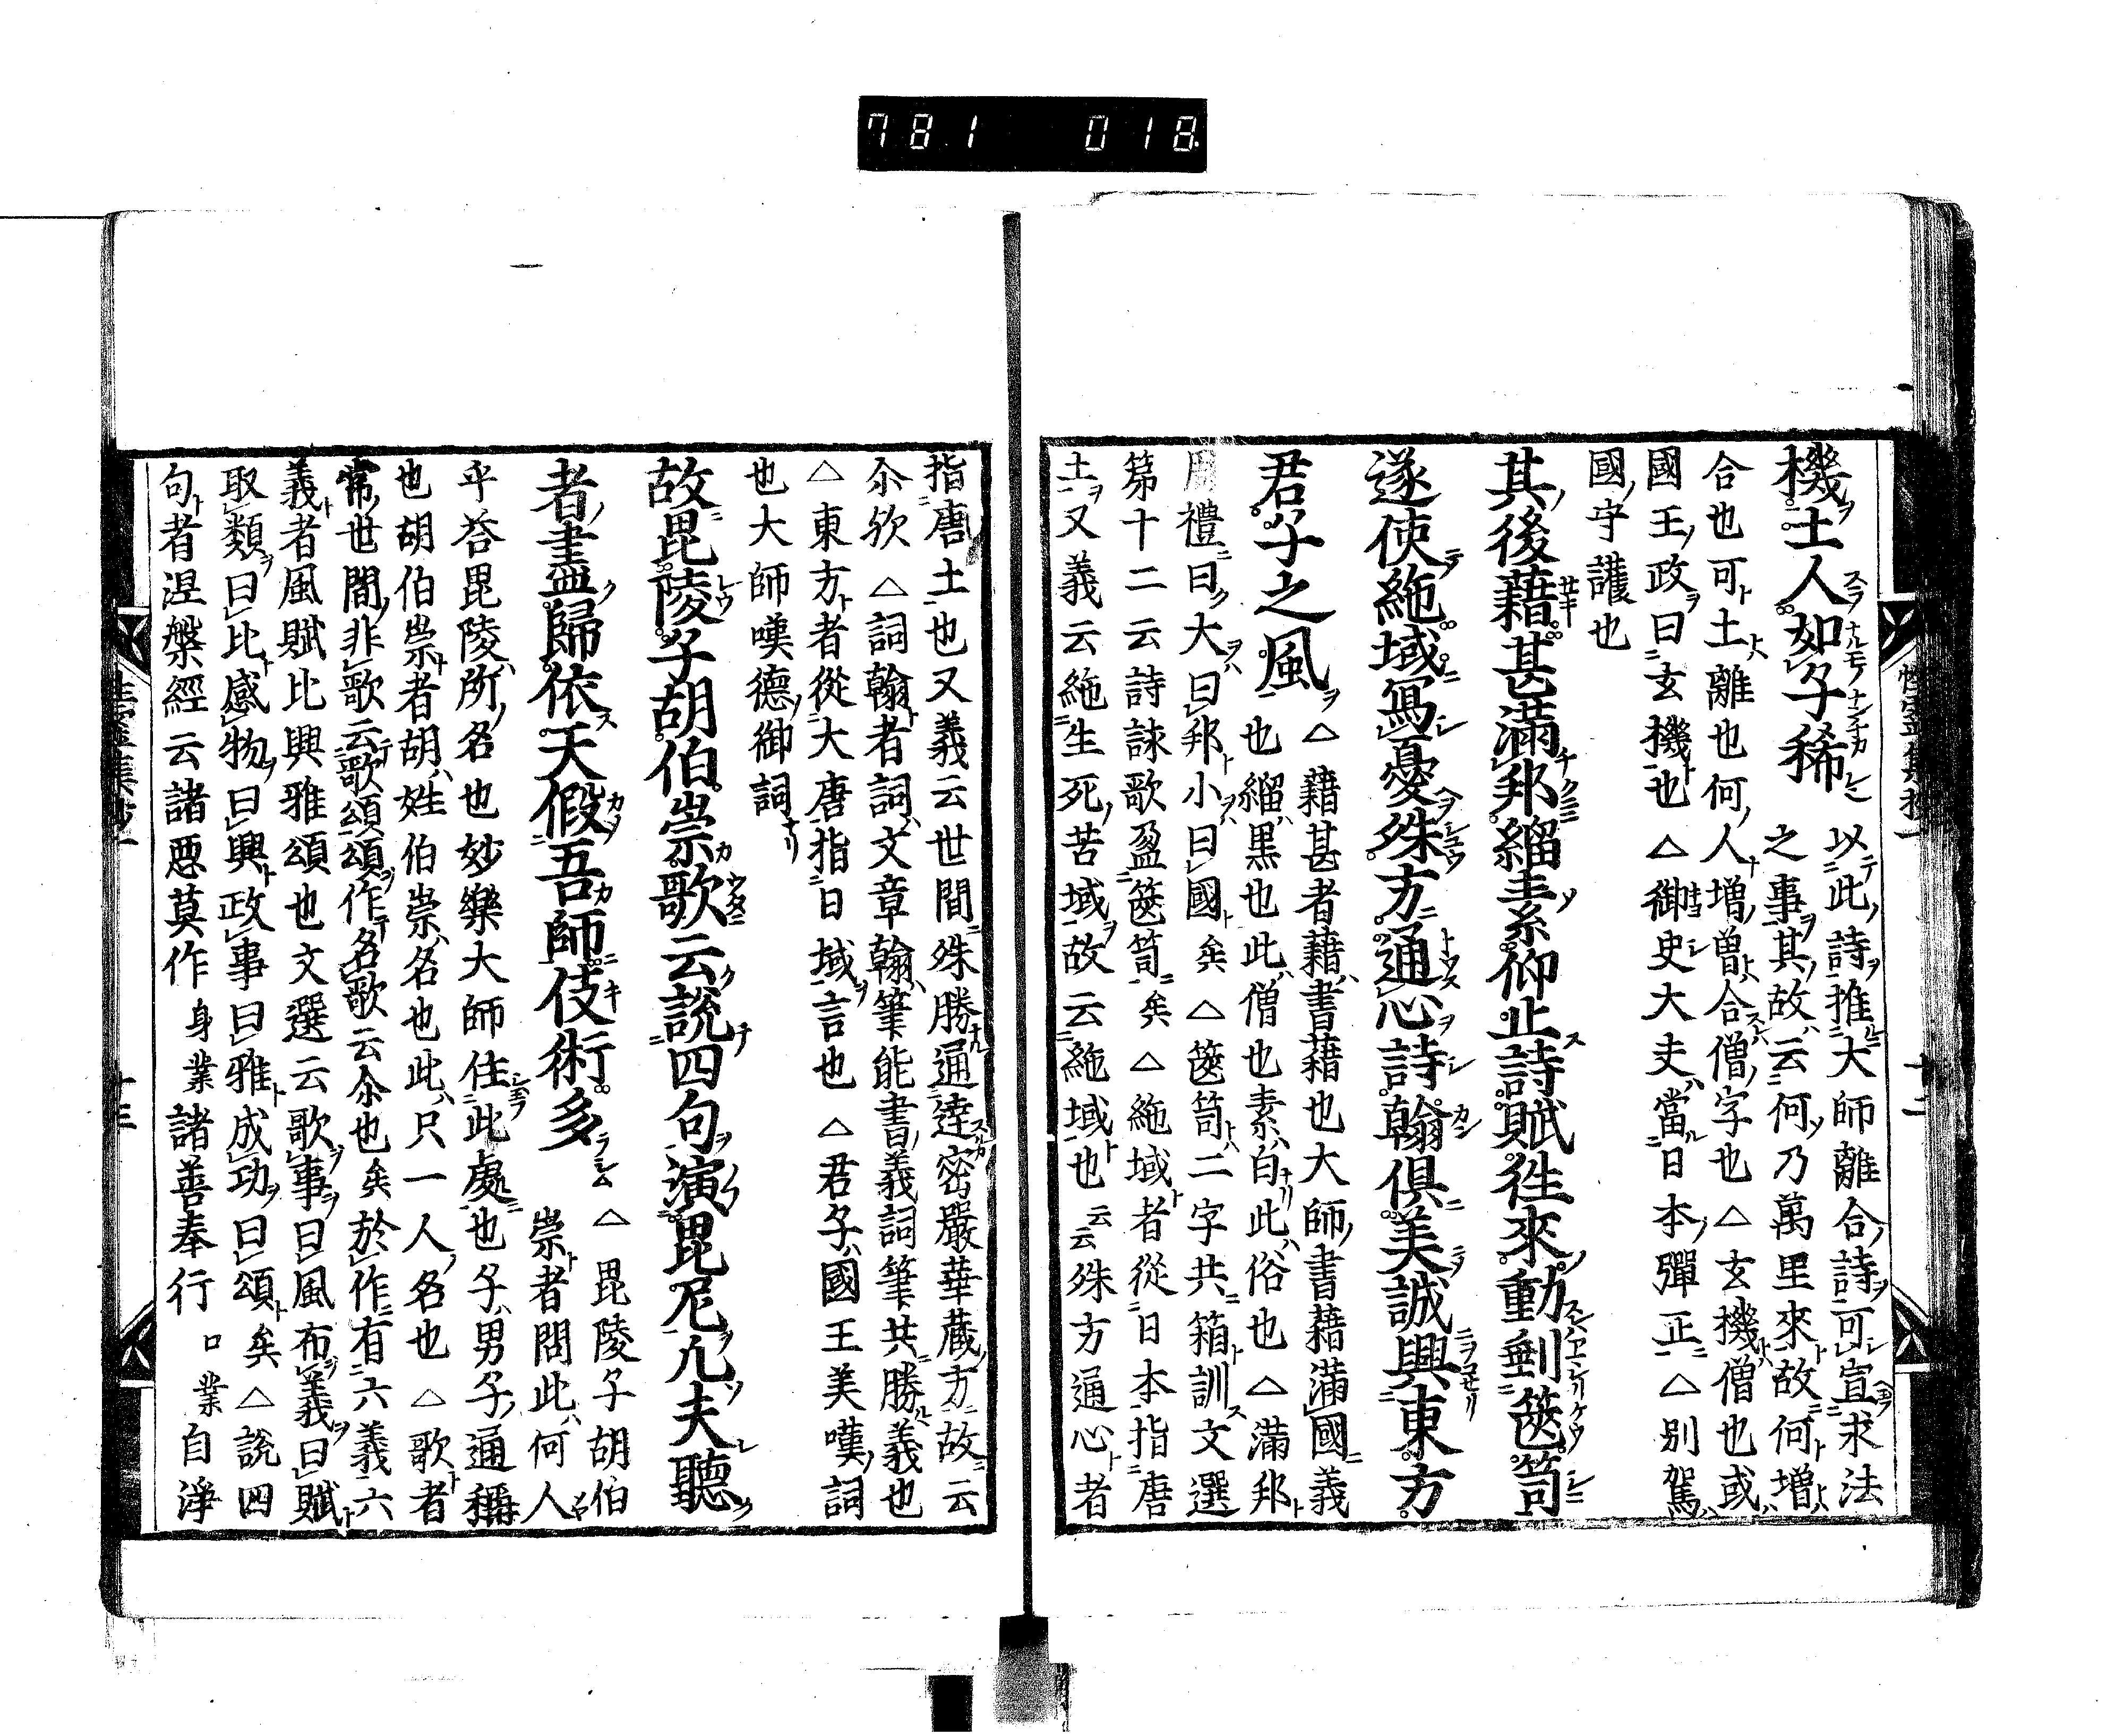 781 018
機土人如子稀
以此詩推大師離合詩可宣求法
之事其故云何乃萬里來故何增
合也可土離也何人增僧合僧字也△玄機僧也或
國王政曰玄機也△御史大夫當日本彈正△別駕
國守護也
其後藉甚滿邦緇素仰止詩賦往來動剩篋笥
遂使絁域寫憂殊方通心詩翰俱美誠興東方
君子之風
△藉甚者藉書藉也大師書藉滿國義
也緇黒也此僧也素白此俗也△滿邦
周禮曰大曰邦小曰國矣△篋笥二字共箱訓文選
第十二云詩誄歌盈篋笥矣△絁域者從日本指唐
土又義云絁生死苦域故云絁域也云云殊方通心者
指唐土也又義云世間殊勝通達密嚴華蔵方故云
尒欤△詞翰者詞文章翰筆能書義詞筆共勝義也
△東方者從大唐指日域言也△君子國王美嘆詞
也大師嘆德御詞
故毘陵子胡伯崇歌云說四句演毘尼凢夫聽
者盡歸依天假吾師伎術多
△毘陵子胡伯
崇者問此何人
乎荅毘陵所名也妙樂大師住此處也子男子通稱
也胡伯崇者胡姓伯崇名也此只一人名也△歌者
常世間非歌云歌頌頌作名歌云尒也矣於作有六義六
義者風賦比興雅頌也文選云歌事曰風布義曰賦
取類曰比感物曰興政事曰雅成功曰頌矣△說四
句者涅槃經云諸惡莫作身業諸善奉行口業自淨